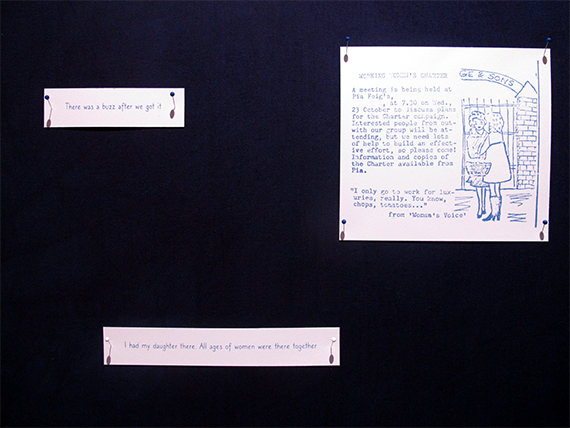 There was a buzz after we got it
WORKING WOMEN'S CHARTER
GE & SONS
A meeting is being held at
Pia Foig's,
, at 7.30 on Wed.,
23 October to iiscuss plans
for the Charter campaign.
Interested people from out-
with our group will be at-
tending, but we need lots
of help to build an effect-
ive effort, so please come!
Information and copies of
the Charter available from
Pia.
"I only go to work for lux-
uries, really. You know,
chops, tomatoes..."
from 'Woman's Voice'
I had my daughter there. All ages of women were there together